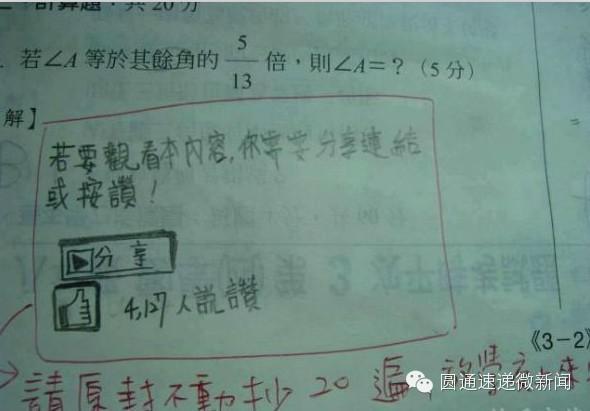 計算題：共 20 分
若∠A 等於其餘角的 5/13 倍，則∠A=？（5 分）
解】
若要觀看本內容,你需要分享連結
或按讚！
分享
4,127 人說讚
《3-2》
請原封不動抄 20 遍
圆通速递微新闻